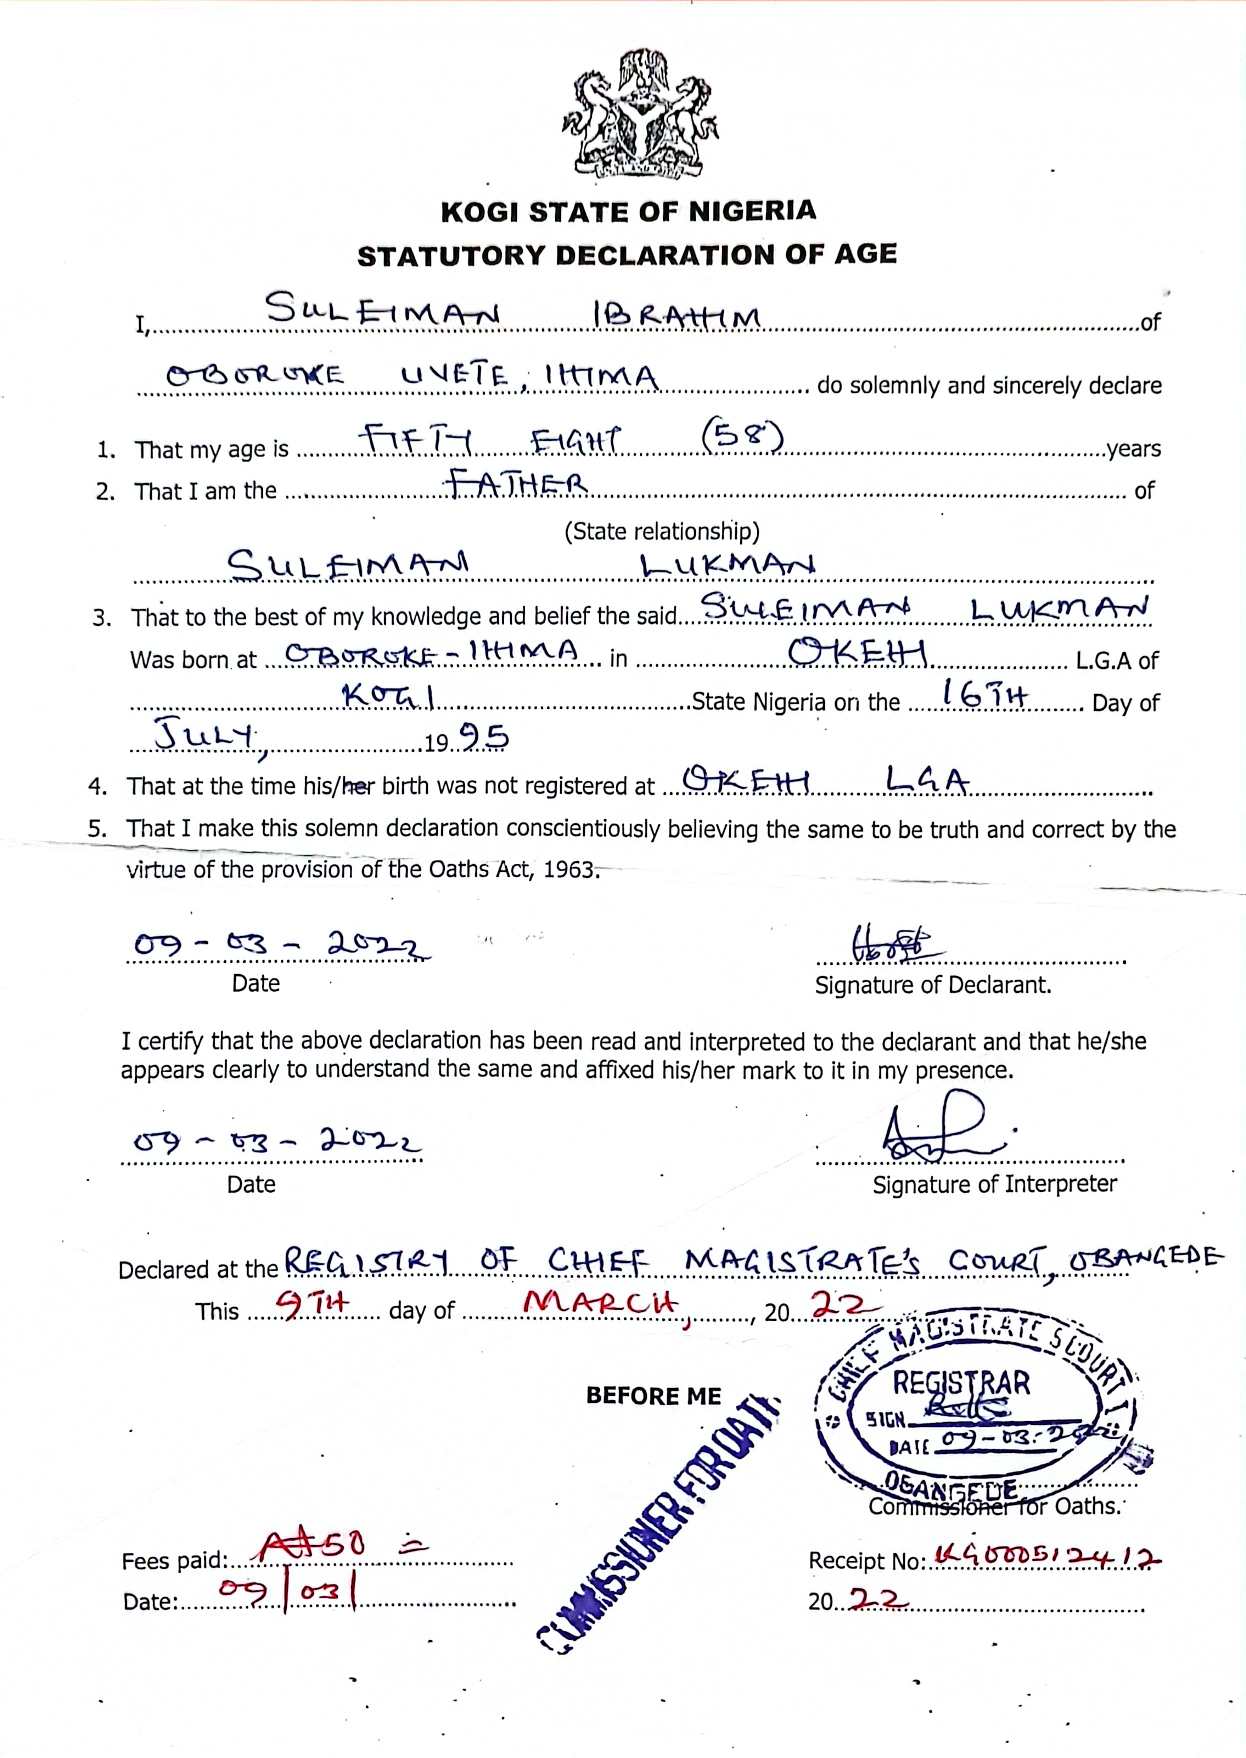 KOGI STATE OF NIGERIA
STATUTORY DECLARATION OF AGE
I, SULEIMAN IBRAHIM of
OBOROKE UVETE, IHIMA do solemnly and sincerely declare
1. That my age is FIFTY EIGHT (58) years
2. That I am the FATHER of
(State relationship)
SULEIMAN LUKMAN
3. That to the best of my knowledge and belief the said SULEIMAN LUKMAN
Was born at OBOROKE-IHIMA in OKEHI L.G.A of
KOGI State Nigeria on the 16TH Day of
JULY, 1995
4. That at the time his/her birth was not registered at OKEHI LGA
5. That I make this solemn declaration conscientiously believing the same to be truth and correct by the
virtue of the provision of the Oaths Act, 1963.
09-03-2022
Date Signature of Declarant.
I certify that the above declaration has been read and interpreted to the declarant and that he/she
appears clearly to understand the same and affixed his/her mark to it in my presence.
09-03-2022
Date Signature of Interpreter
Declared at the REGISTRY OF CHIEF MAGISTRATE'S COURT, OBANGEDE
This 9TH day of MARCH, 2022
CHIEF MAGISTRATE'S COURT I
REGISTRAR
SIGN
DATE 09-03-2022
OBANGEDE
BEFORE ME
COMMISSIONER FOR OATH
Commissioner for Oaths.
Fees paid: ₦50 = Receipt No: KG000512412
Date: 09/03/ 2022